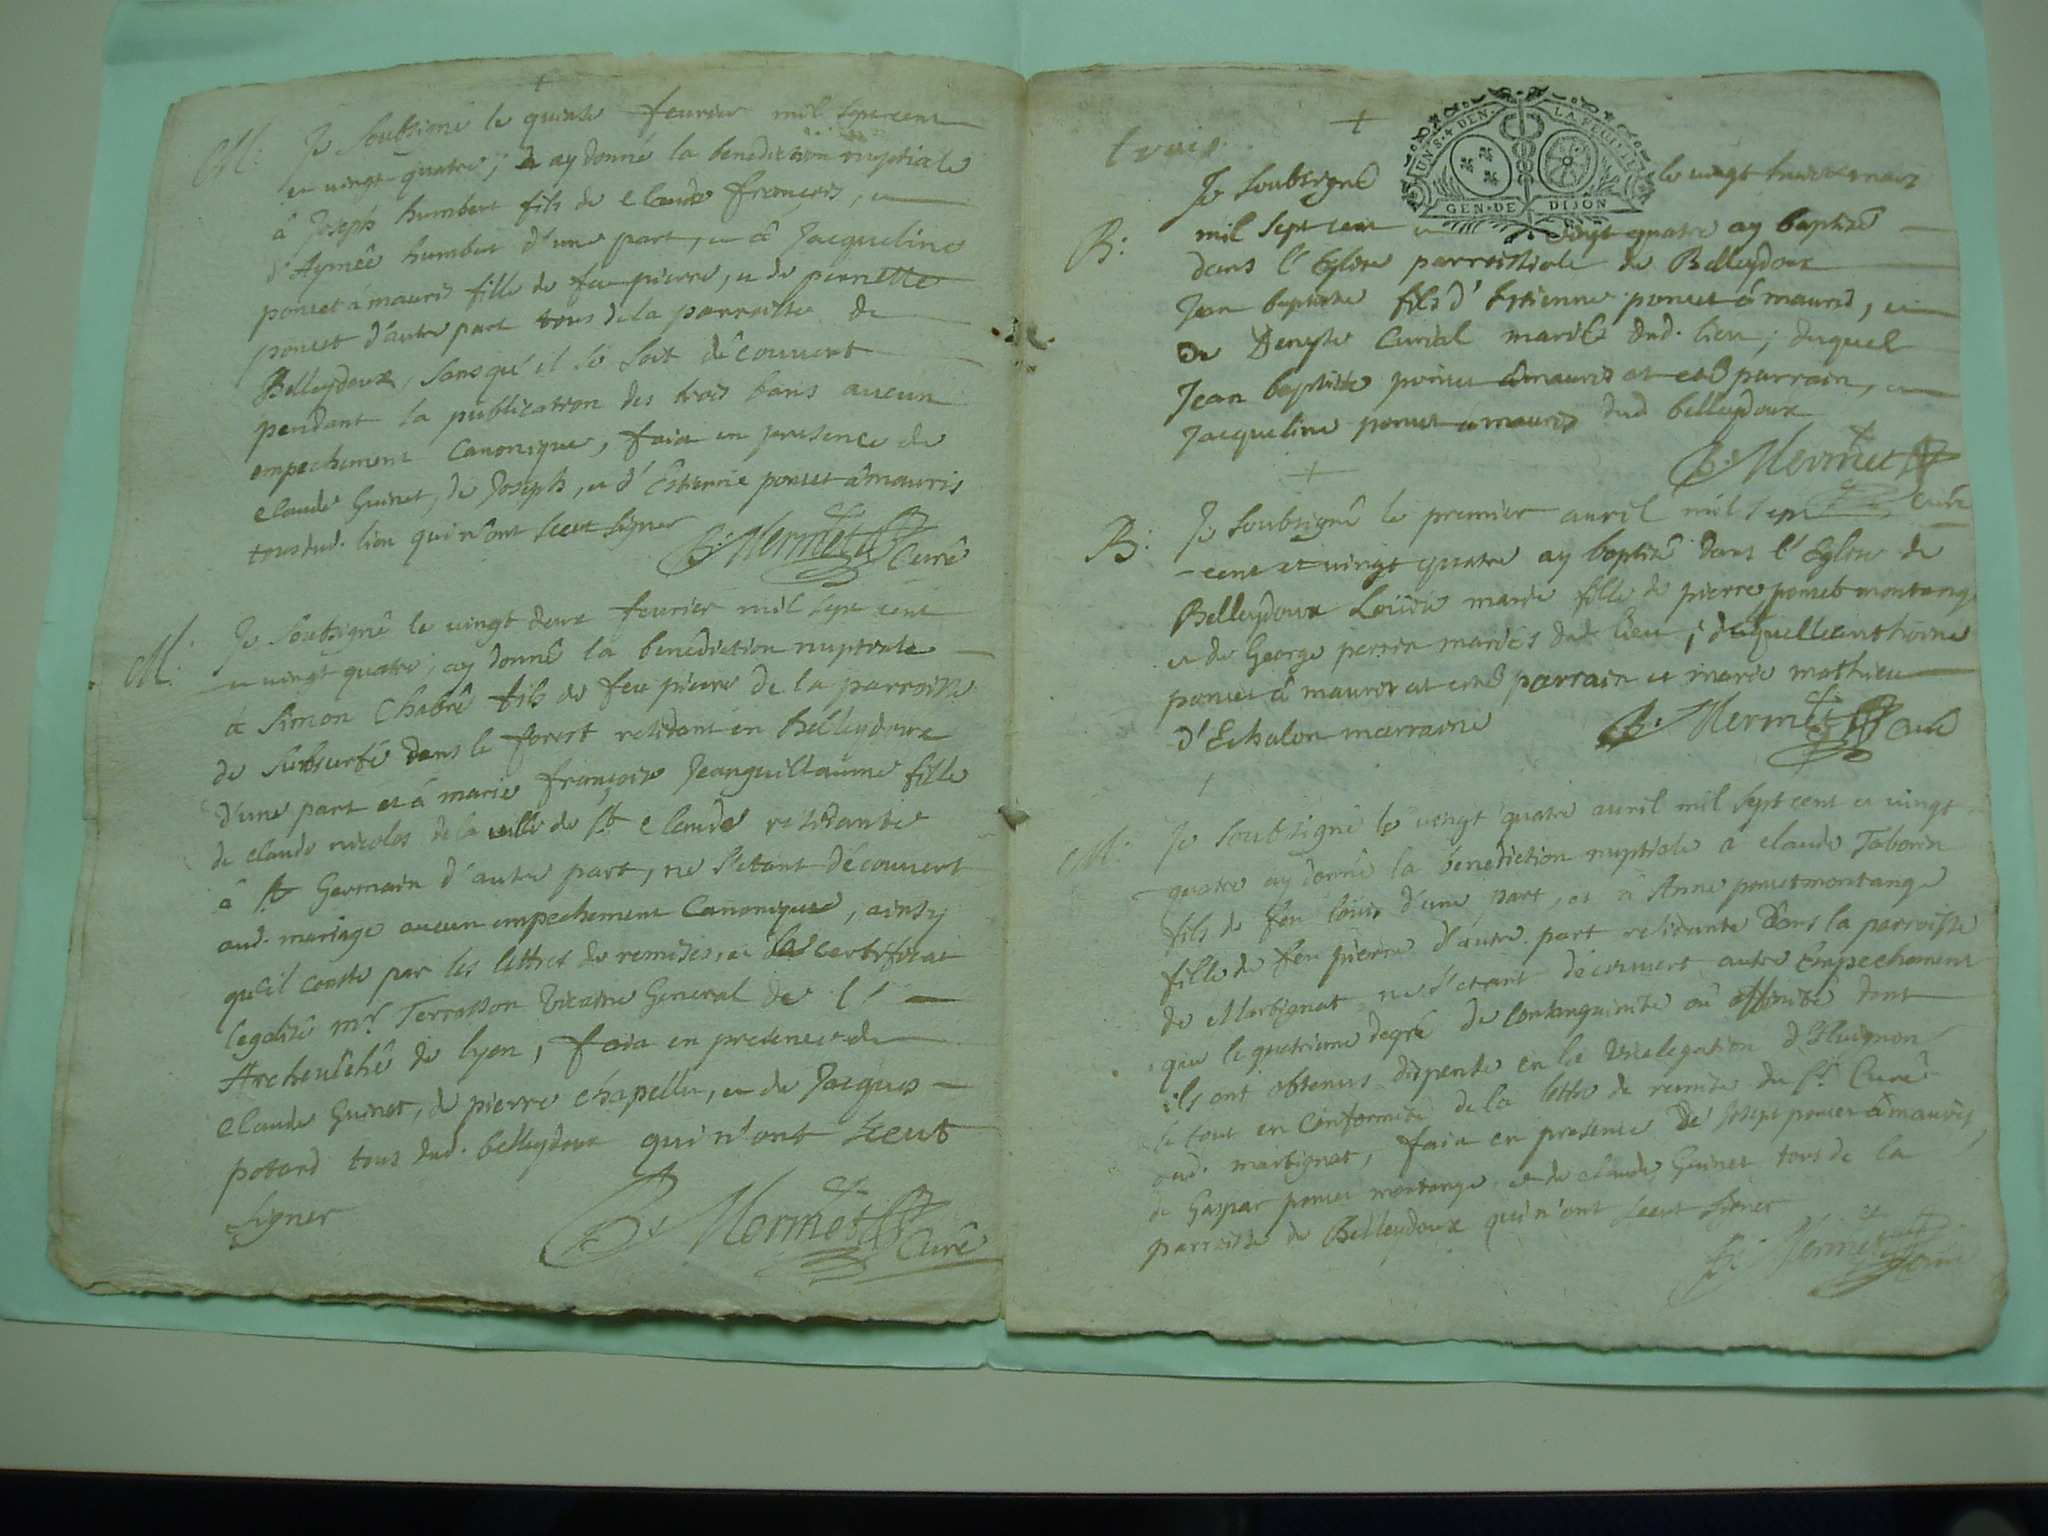 +
M. Je soubsigné le quinse feurier mil sept cent
et vingt quatre, ay donné la benediction nuptiale
â Joseph humbert fils de claude françois, et
d'Aymée humbert d'une part, et â Jacqueline
poncet âmauris fille de feu pierre, et de pernette
poncet d'autre part tous de la parroisse de
Belleydoux, sans qu'il se soit découvert
pendant la publication des trois bans aucun
empechement Canonique, fait en presence de
claude Guinet, de Joseph, et d'Estienne poncet âmauris
tous dud. lieu qui n'ont sceut signer
B. Mermet Curé
M. Je soubsigné le vingt deux feurier mil sept cent
et vingt quatre, ay donné la benédiction nuptiale
â Simon Chabré fils de feu pierre de la parroisse
de dans le forest residant en Belleydoux
d'une part et â marie françoise Jeanguillaume fille
de claude nicolas de la ville de St claude residante
â St Germain d'autre part, ne s'etant découvert
aud. mariage aucun empechement Canonique, ainsy
qu'il conste par les lettres de remises, et le certificat
legalisé mr. Terrasson Vicaire General de l'
Archeuêché de lyon, fait en presence de
Claude Guinet, de pierre chapellu, et de Jacques
potard tous dud. belleydoux qui n'ont sceut
signer
B. Mermet Curé
trois
+
UN S. 4 DEN. LA FEUILLE
GEN. DE DIJON
Je soubsigné le vingt mars
B. mil sept cent et vingt quatre ay baptisé
dans l'Eglise parroissiale de Belleydoux
Jean baptiste fils d'Estienne poncet âmauris, et
de Denyse Curial mariés dud. lieu; duquel
Jean baptiste poncet âmauris at esté parrain, et
Jacqueline poncet âmauris dud belleydoux
B. Mermet
Curé
+
B. Je soubsigné le premier auril mil sept
cent et vingt quatre ay baptisé dans l'Eglise de
Belleydoux Loüise marie fille de pierre poncet montange
et de George perrin mariés dud. lieu; de laquelle anthoine
poncet â mauris at esté parrain et marie mathieu
d'Echalon marraine
B. Mermet Curé
+
M. Je soubsigné le vingt quatre auril mil sept cent et vingt
quatre ay donné la bénediction nuptiale â claude Taborin
fils de feu louis d'une part, et â Anne poncet montange
fille de feu pierre d'autre part residante dans la parroisse
de Martignat ne s'etant découvert autre Empechement
que le quatrieme degré de Consanguinité oû affinité dont
ils ont obtenus dispense en la Vicelegation d'Auignon
le tout en Conformité de la lettre de remise du Sr Curé
aud. martignat, fait en presence de Joseph poncet âmauris,
de Gaspar poncet montange et de claude Guinet tous de la
parroisse de Belleydoux qui n'ont sceut signer
B. Mermet Curé